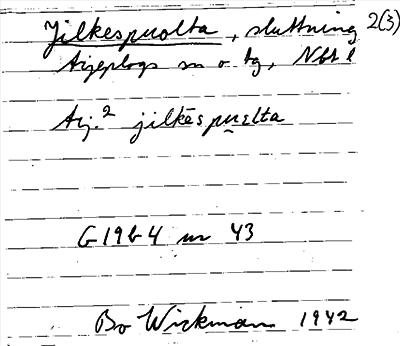 Jilkespuolta, sluttning 2(3)
Arjeplogs sn o tg, Nbt l
Arj.² jilkēspuolta
G 19 b 4 nr 43
Bo Wickman 1942